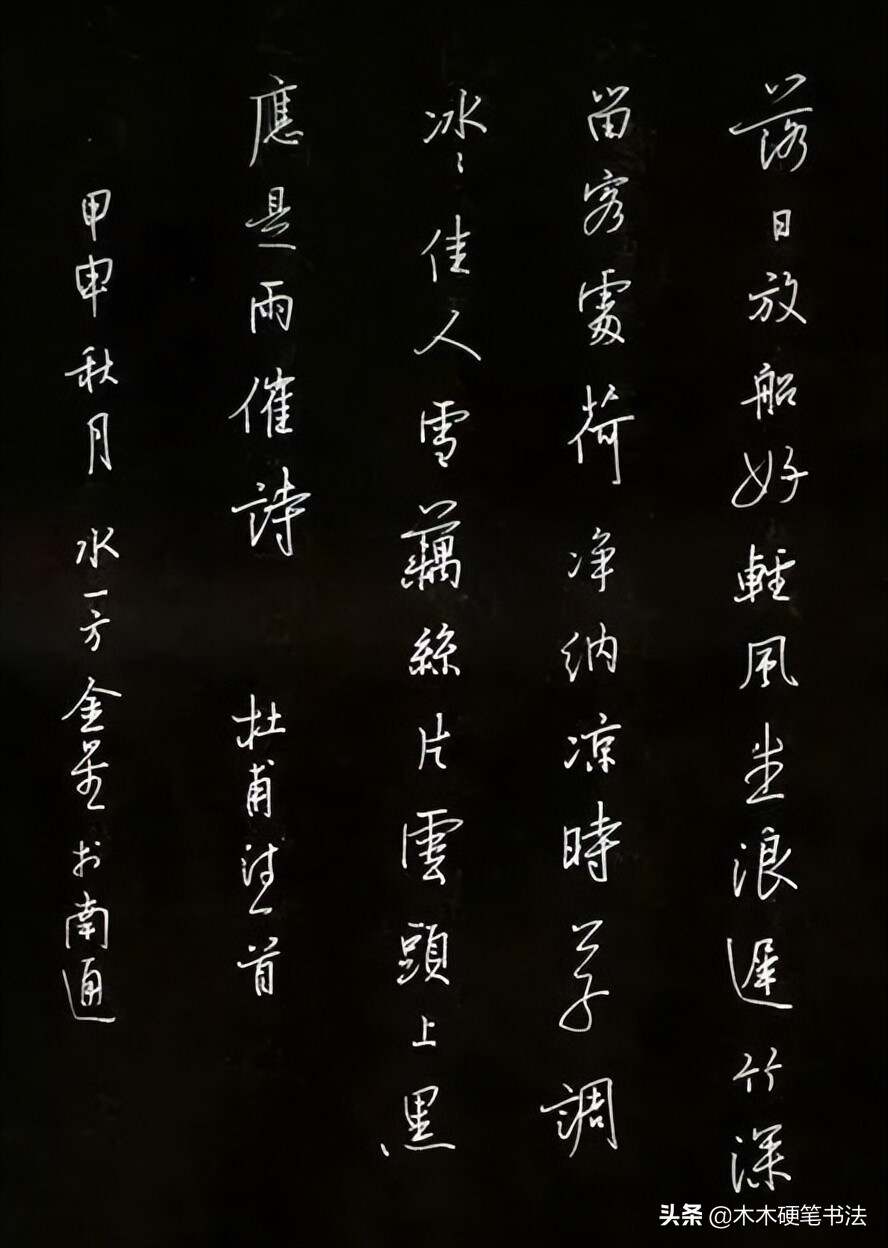 落日放船好輕風生浪遲竹深
留客處荷净纳凉時公子調
冰〻佳人雪藕絲片雲頭上黑
應是雨催詩 杜甫詩一首
甲申秋月 水一方金 於南通
头条 @木木硬笔书法